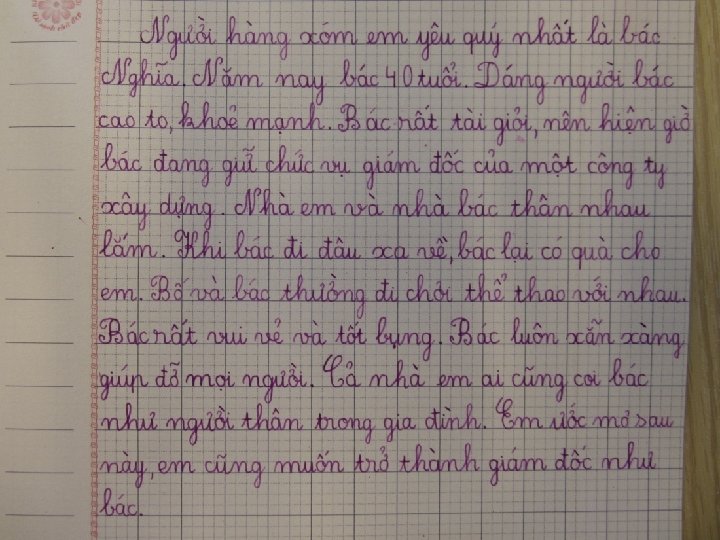 Người hàng xóm em yêu quý nhất là bác
Nghĩa. Năm nay bác 40 tuổi. Dáng người bác
cao to, khoẻ mạnh. Bác rất tài giỏi, nên hiện giờ
bác đang giữ chức vụ giám đốc của một công ty
xây dựng. Nhà em và nhà bác thân nhau
lắm. Khi bác đi đâu xa về, bác lại có quà cho
em. Bố và bác thường đi chơi thể thao với nhau.
Bác rất vui vẻ và tốt bụng. Bác luôn xẵn xàng
giúp đỡ mọi người. Cả nhà em ai cũng coi bác
như người thân trong gia đình. Em ước mơ sau
này, em cũng muốn trở thành giám đốc như
bác.